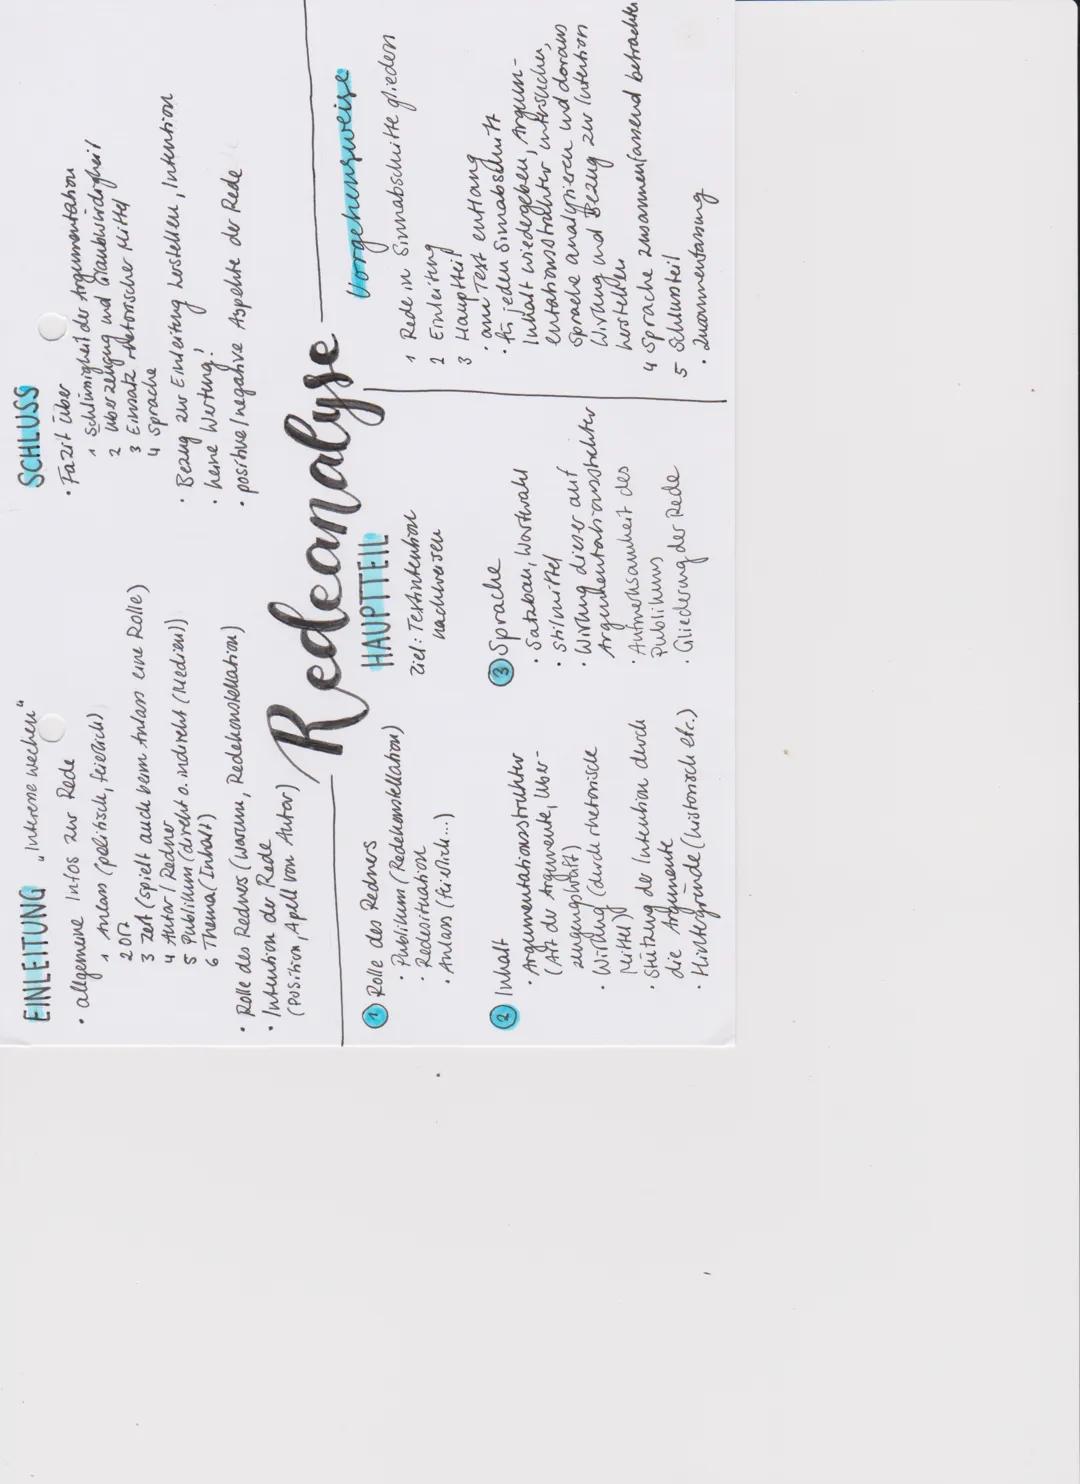 EINLEITUNG „Interesse wecken“
• allgemeine Infos zur Rede
1 Anlass (politisch, feierlich)
2 Ort
3 Zeit (spielt auch beim Anlass eine Rolle)
4 Autor / Redner
5 Publikum (direkt o. indirekt (Medien))
6 Thema (Inhalt)
• Rolle des Redners (warum, Redekonstellation)
• Intention der Rede
(Position, Apell von Autor)
SCHLUSS
• Fazit über
1 Schlüssigkeit der Argumentation
2 Überzeugung und Glaubwürdigkeit
3 Einsatz rhetorischer Mittel
4 Sprache
• Bezug zur Einleitung herstellen, Intention
• keine Wertung!
• positive / negative Aspekte der Rede
Redeanalyse
HAUPTTEIL
Ziel: Textintention
nachweisen
① Rolle des Redners
• Publikum (Redekonstellation)
• Redesituation
• Anlass (feierlich...)
② Inhalt
• Argumentationsstruktur
(Art der Argumente, Über-
zeugungskraft)
• Wirkung (durch rhetorische
Mittel)
• Stützung der Intention durch
die Argumente
• Hintergründe (historisch etc.)
③ Sprache
• Satzbau, Wortwahl
• Stilmittel
• Wirkung dieser auf
Argumentationsstruktur
• Aufmerksamkeit des
Publikums
• Gliederung der Rede
Vorgehensweise
1 Rede in Sinnabschnitte gliedern
2 Einleitung
3 Hauptteil
• am Text entlang
• für jeden Sinnabschnitt
Inhalt wiedergeben, Argum-
entationsstruktur untersuchen,
Sprache analysieren und daraus
Wirkung und Bezug zur Intention
herstellen
4 Sprache zusammenfassend betrachten
5 Schlussteil
• Zusammenfassung